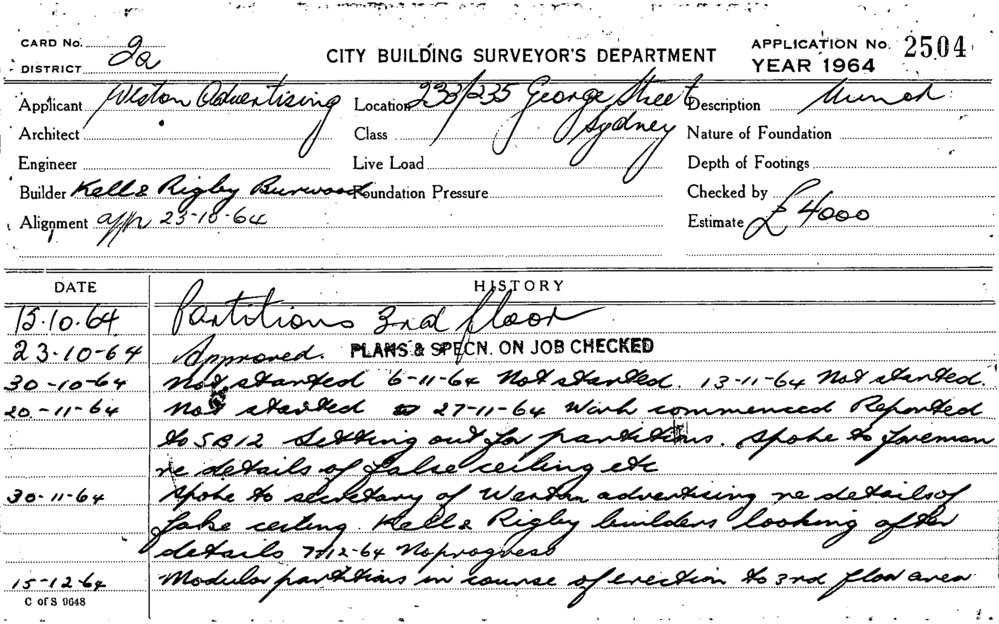 CARD No. 2a
DISTRICT
CITY BUILDING SURVEYOR'S DEPARTMENT
APPLICATION No. 2504
YEAR 1964
Applicant Weston Advertising
Location 233/235 George Street Sydney
Description Minor
Architect
Class
Nature of Foundation
Engineer
Live Load
Depth of Footings
Builder Kell & Rigby Burwood
Foundation Pressure
Checked by
Alignment appr 23-10-64
Estimate £4000
DATE HISTORY
15.10.64 Partitions 3rd floor
23-10-64 Approved. PLANS & SPECN. ON JOB CHECKED
30-10-64 Not started 6-11-64 Not started. 13-11-64 Not started.
20-11-64 Not started 27-11-64 Work commenced Reported
to SB12 Setting out for partitions. Spoke to foreman
re details of false ceiling etc
30-11-64 Spoke to secretary of Weston advertising re details of
false ceiling. Kell & Rigby builders looking after
details 7-12-64 No progress
15-12-64 Modular partitions in course of erection to 3rd floor area
C of S 9648